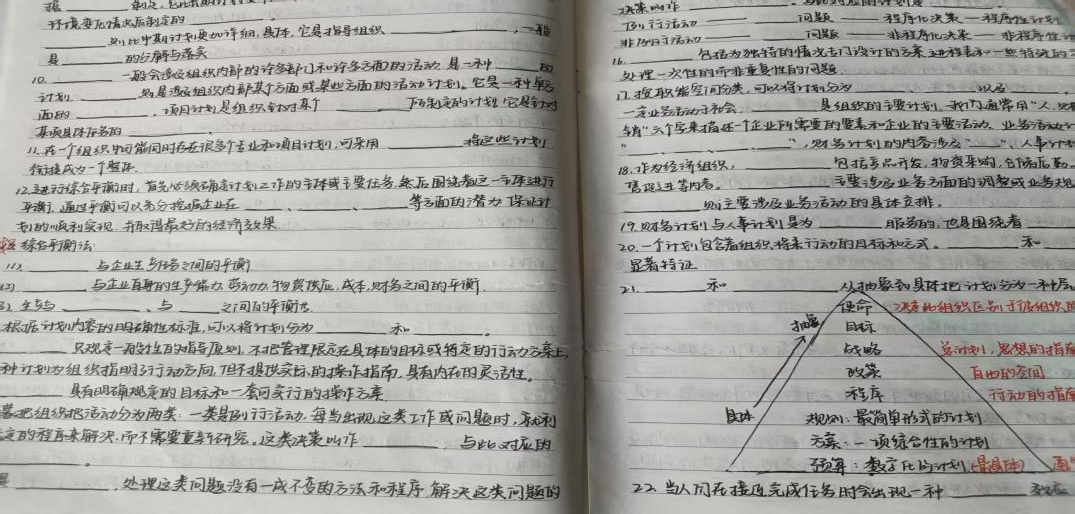 环境变化情况后制定的
则比中期计划更加详细,具体,它是指导组织
的分解与落实
10. 一般会涉及组织内部的许多部门和许多方面的活动,是一种 的
计划 则是涉及组织内部某个方面或某些方面的活动计划。它是一种单方
面的 。项目计划是组织针对某个 下而制定的计划,它是针对
某项具体任务的
11.在一个组织中可能同时存在很多个专业和项目计划,可采用 将这些计划
衔接成为一个整体
12.在进行综合平衡时,首先必须确定计划工作的主体或主要任务,然后围绕着这一主体进行
平衡,通过平衡可以充分挖掘企业在 、 等方面的潜力 保证计
划的顺利实现,并取得最好的经济效果
综合平衡法:
(1) 与企业生产任务之间的平衡
(2) 与企业自身的生产能力,劳动力,物资供应,成本,财务之间的平衡
生产与 、与 之间的平衡
根据计划内容的明确性标准,可以将计划分为 和 。
只规定一般性的指导原则,不把管理限定在具体的目标或特定的行动方案上
种计划为组织指明了行动方向,但不提供实际的操作指南,具有内在的灵活性。
具有明确规定的目标和一套可实行的操作方案
把组织把活动分为两类:一类是例行活动,每当出现这类工作或问题时,就利
定的程序来解决,而不需要重新研究。这类决策叫作 ,与此对应的
。
,处理这类问题没有一成不变的方法和程序,解决这类问题的
决策叫作
例行活动—— 问题——程序化决策——程序性计划
非例行活动 问题——非程序化决策——非程序性
16. 包括为独特的情况专门设计的方案
处理一次性的而非重复性的问题
17.按职能空间分类,可以将计划分为 以及
是组织的主要计划,我们通常用“人,财
”六个字来描述一个企业所需要的要素和企业的主要活动。业务活动
“ ”,财务计划的内容涉及“ ”,人事计划
18.作为经济组织, 包括产品开发,物资采购,仓储后勤,
等内容。 主要涉及业务方面的调整或业务规
则主要涉及业务活动的具体安排。
19.财务计划与人事计划是为 服务的,也是围绕着
20.一个计划包含着组织将来行动的目标和方式。 和
显著特征
21. 和 从抽象到具体把计划分为一种层
使命 决定此组织区别于彼组织的
抽象
目标
战略 总计划,思想的指南
政策 自由的空间
程序 行动的指南
具体
规则:最简单形式的计划
方案:一项综合性的计划
预算:数字化的计划(最具体)
22.当人们在接近完成任务时会出现一种